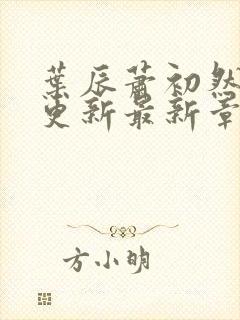 葉辰蕭初然
更新最新章
方小明